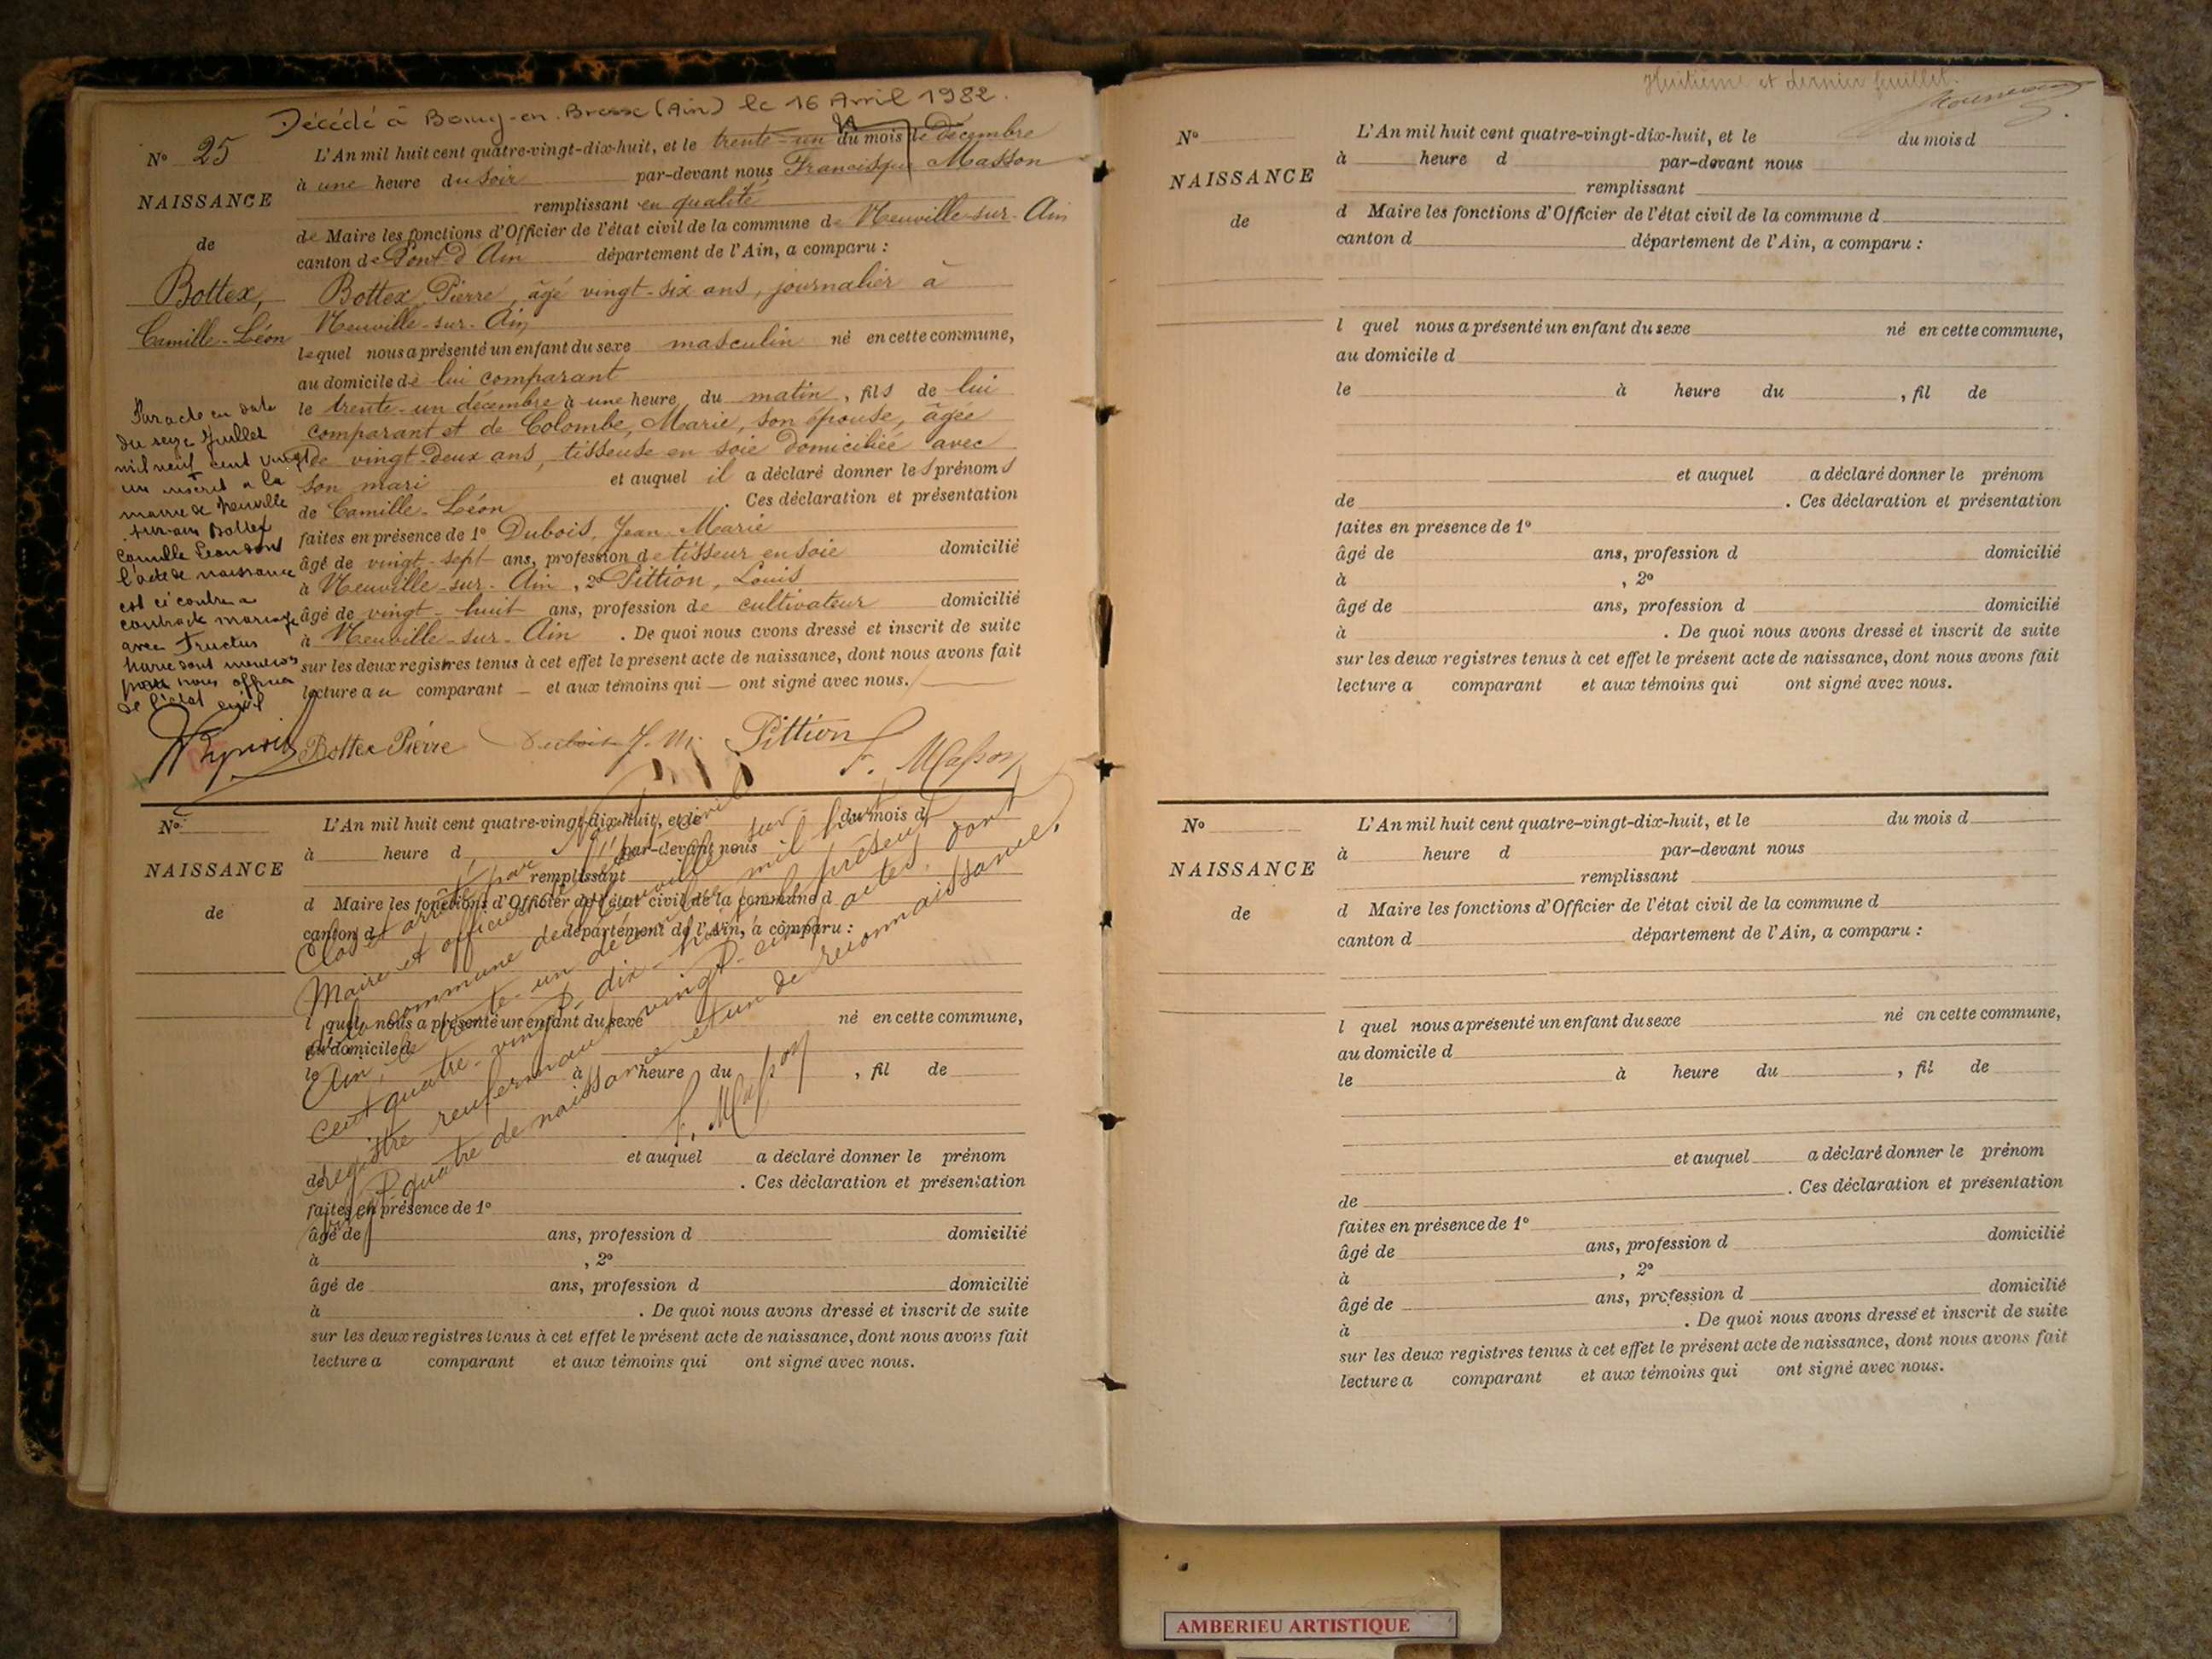 Décédé à Bourg-en-Bresse (Ain) le 16 Avril 1982.
N° 25
NAISSANCE
de
Bottex,
Camille-Léon
L'An mil huit cent quatre-vingt-dix-huit, et le trente-un du mois de Décembre
à une heure du soir par-devant nous Francisque Masson
remplissant en qualité
de Maire les fonctions d'Officier de l'état civil de la commune de Neuville-sur-Ain
canton de Pont d'Ain département de l'Ain, a comparu :
Bottex, Pierre, âgé vingt-six ans, journalier à
Neuville-sur-Ain
lequel nous a présenté un enfant du sexe masculin né en cette commune,
au domicile de lui comparant
le trente-un décembre à une heure du matin, fils de lui
comparant et de Colombe, Marie, son épouse, âgée
de vingt-deux ans, tisseuse en soie domiciliée avec
son mari et auquel il a déclaré donner les prénoms
de Camille-Léon. Ces déclaration et présentation
faites en présence de 1° Dubois, Jean-Marie
âgé de vingt-sept ans, profession de tisseur en soie domicilié
à Neuville-sur-Ain, 2° Pittion, Louis
âgé de vingt-huit ans, profession de cultivateur domicilié
à Neuville-sur-Ain. De quoi nous avons dressé et inscrit de suite
sur les deux registres tenus à cet effet le présent acte de naissance, dont nous avons fait
lecture au comparant et aux témoins qui ont signé avec nous.
Par acte en date
du seize Juillet
mil neuf cent vingt
un inscrit à la
mairie de Neuville
sur-ain Bottex
Camille Léon dont
l'acte de naissance
est ci contre a
contracté mariage
avec Fructus
Marie dont mention
par nous officier
de l'état civil
Bottex Pierre Dubois J. M. Pittion
F. Masson
N°
NAISSANCE
de
L'An mil huit cent quatre-vingt-dix-huit, et le du mois d
à heure d par-devant nous
remplissant
d Maire les fonctions d'Officier de l'état civil de la commune d
canton d département de l'Ain, a comparu :
l quel nous a présenté un enfant du sexe né en cette commune,
au domicile d
le à heure du , fil de
et auquel a déclaré donner le prénom
de . Ces déclaration et présentation
faites en présence de 1°
âgé de ans, profession d domicilié
à , 2°
âgé de ans, profession d domicilié
à . De quoi nous avons dressé et inscrit de suite
sur les deux registres tenus à cet effet le présent acte de naissance, dont nous avons fait
lecture a comparant et aux témoins qui ont signé avec nous.
Clos et arrêté par Nous
Maire et officier de l'état civil
de la commune de Neuville sur
Ain, le trente-un décembre mil huit
cent quatre-vingt-dix-huit le présent
registre renfermant vingt-cinq actes, dont
vingt quatre de naissance et un de reconnaissance.
F. Masson
Huitième et dernier feuillet.
N°
NAISSANCE
de
L'An mil huit cent quatre-vingt-dix-huit, et le du mois d
à heure d par-devant nous
remplissant
d Maire les fonctions d'Officier de l'état civil de la commune d
canton d département de l'Ain, a comparu :
l quel nous a présenté un enfant du sexe né en cette commune,
au domicile d
le à heure du , fil de
et auquel a déclaré donner le prénom
de . Ces déclaration et présentation
faites en présence de 1°
âgé de ans, profession d domicilié
à , 2°
âgé de ans, profession d domicilié
à . De quoi nous avons dressé et inscrit de suite
sur les deux registres tenus à cet effet le présent acte de naissance, dont nous avons fait
lecture a comparant et aux témoins qui ont signé avec nous.
N°
NAISSANCE
de
L'An mil huit cent quatre-vingt-dix-huit, et le du mois d
à heure d par-devant nous
remplissant
d Maire les fonctions d'Officier de l'état civil de la commune d
canton d département de l'Ain, a comparu :
l quel nous a présenté un enfant du sexe né en cette commune,
au domicile d
le à heure du , fil de
et auquel a déclaré donner le prénom
de . Ces déclaration et présentation
faites en présence de 1°
âgé de ans, profession d domicilié
à , 2°
âgé de ans, profession d domicilié
à . De quoi nous avons dressé et inscrit de suite
sur les deux registres tenus à cet effet le présent acte de naissance, dont nous avons fait
lecture a comparant et aux témoins qui ont signé avec nous.
AMBERIEU ARTISTIQUE